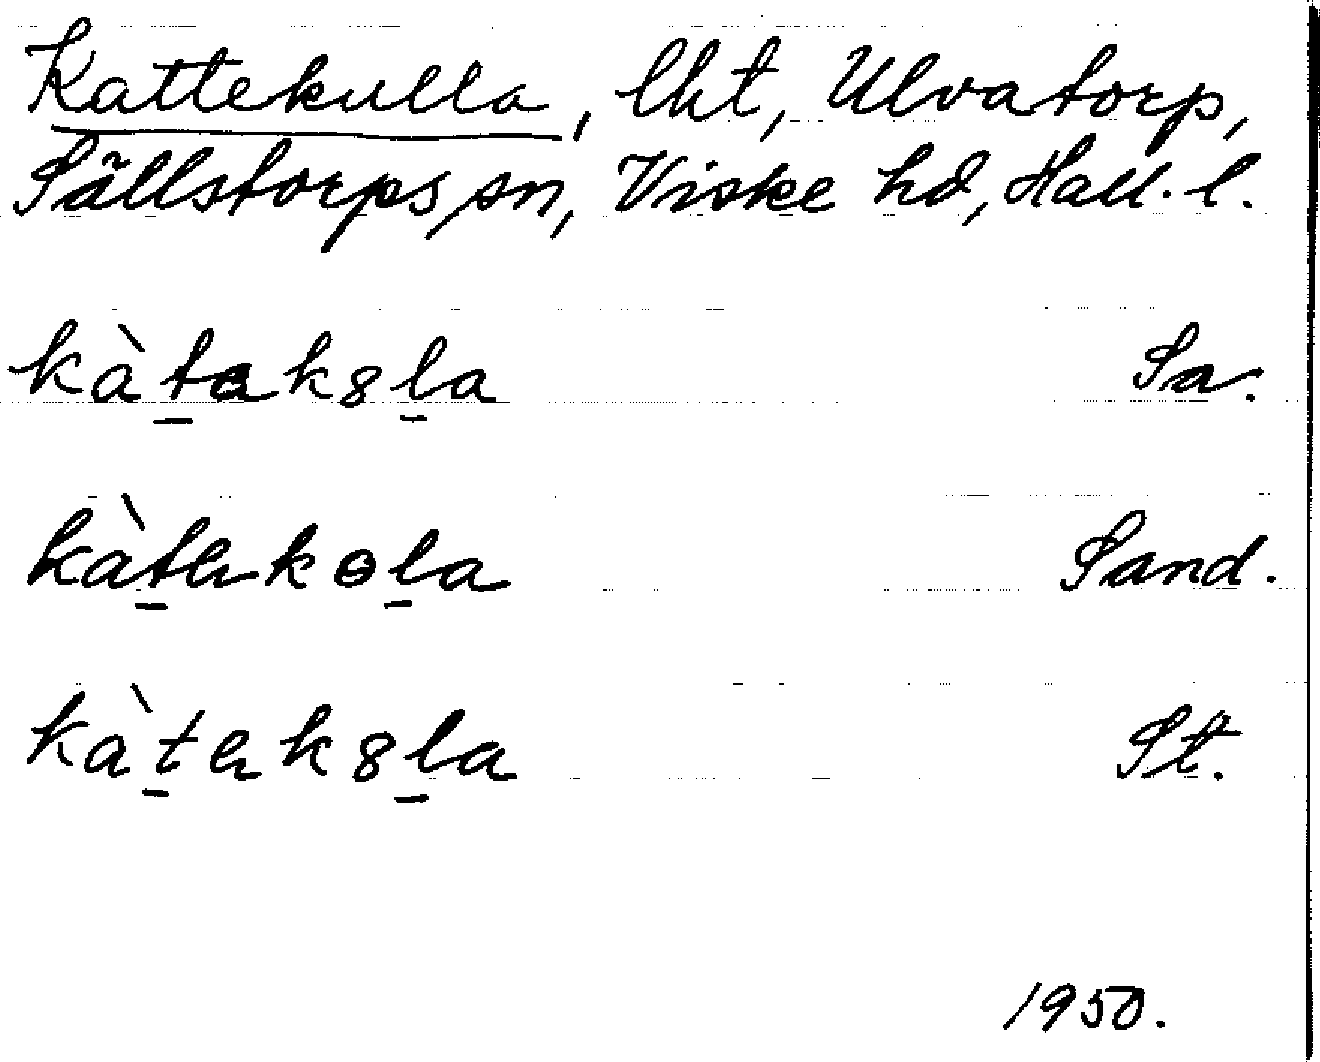 Kattekulla, lht, Ulvatorp,
Sällstorps sn, Viske hd, Hall. l.
kàt̠ak8l̠a Sa.
kàt̠əkɵl̠a Sand.
kàt̠ək8l̠a St.
1950.